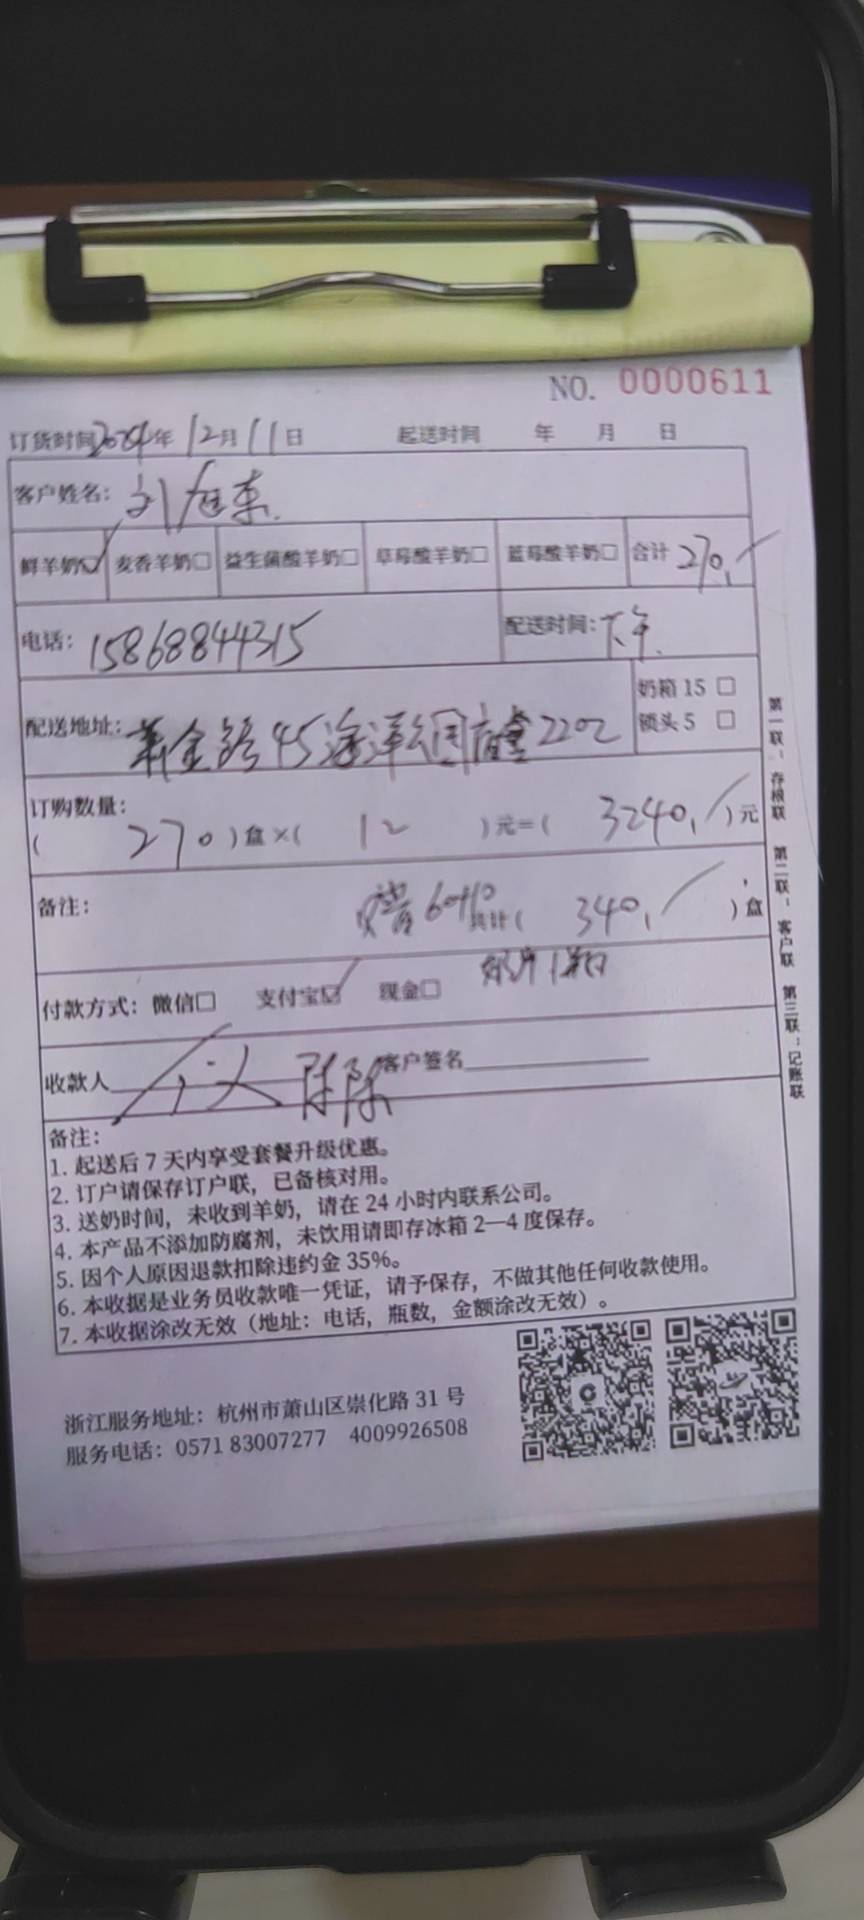 NO. 0000611
订货时间2024年12月11日 起送时间 年 月 日
客户姓名：刘旭东
鲜羊奶☑ 麦香羊奶□ 益生菌酸羊奶□ 草莓酸羊奶□ 蓝莓酸羊奶□ 合计 270
电话：15868844315 配送时间：下午
配送地址：萧金路45海洋公园 2202
奶箱 15 □
锁头 5 □
订购数量：
( 270 ) 盒 ×( 12 ) 元＝( 3240 ) 元
备注： 赠 60+10 共计( 340 ) 盒
付款方式：微信□ 支付宝☑ 现金□
收款人 客户签名
备注：
1. 起送后 7 天内享受套餐升级优惠。
2. 订户请保存订户联，已备核对用。
3. 送奶时间，未收到羊奶，请在 24 小时内联系公司。
4. 本产品不添加防腐剂，未饮用请即存冰箱 2—4 度保存。
5. 因个人原因退款扣除违约金 35%。
6. 本收据是业务员收款唯一凭证，请予保存，不做其他任何收款使用。
7. 本收据涂改无效（地址：电话，瓶数，金额涂改无效）。
第一联：存根联 第二联：客户联 第三联：记账联
浙江服务地址：杭州市萧山区崇化路 31 号
服务电话：0571 83007277 4009926508